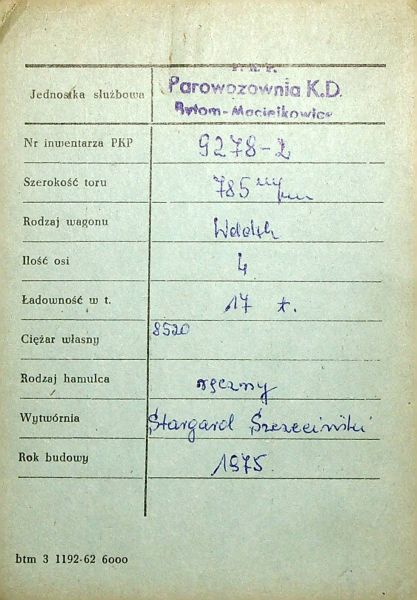 P. K. P.
Parowozownia K.D.
Jednostka służbowa
Bytom-Maciejkowice
Nr inwentarza PKP 9278-2
Szerokość toru 785 m/m
Rodzaj wagonu
Ilość osi 4
Ładowność w t. 17 t.
Ciężar własny 8520
Rodzaj hamulca ręczny
Wytwórnia Stargard Szczeciński
Rok budowy 1975
btm 3 1192-62 6000